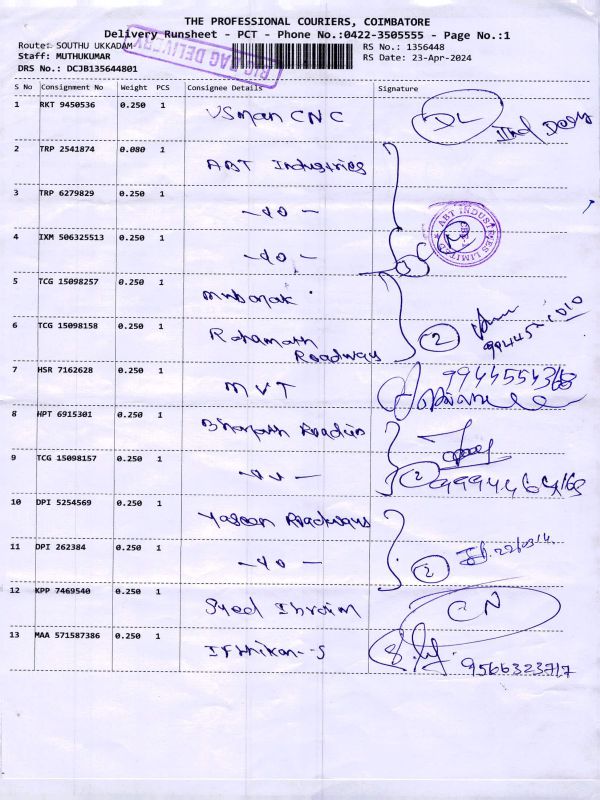 THE PROFESSIONAL COURIERS, COIMBATORE
Delivery Runsheet - PCT - Phone No.:0422-3505555 - Page No.:1
Route: SOUTHU UKKADAM RS No.: 1356448
Staff: MUTHUKUMAR RS Date: 23-Apr-2024
DRS No.: DCJB135644801
BIG BAG DELIVERY
S No Consignment No Weight PCS Consignee Details Signature
1 RKT 9450536 0.250 1 Usman CNC DL
2 TRP 2541874 0.080 1 ABT Industries
3 TRP 6279829 0.250 1 -do-
ABT INDUSTRIES LIMITED
4 IXM 506325513 0.250 1 -do- 3
5 TCG 15098257 0.250 1 Mubarak
6 TCG 15098158 0.250 1 Rahamath Roadways 2
7 HSR 7162628 0.250 1 MVT
8 HPT 6915301 0.250 1 Bharath Roadies
9 TCG 15098157 0.250 1 2
10 DPI 5254569 0.250 1 Yaseen Roadways
11 DPI 262384 0.250 1 -do- 2
12 KPP 7469540 0.250 1 Syed Ibraim CN
13 MAA 571587386 0.250 1 Ifthikar-S
9566323717